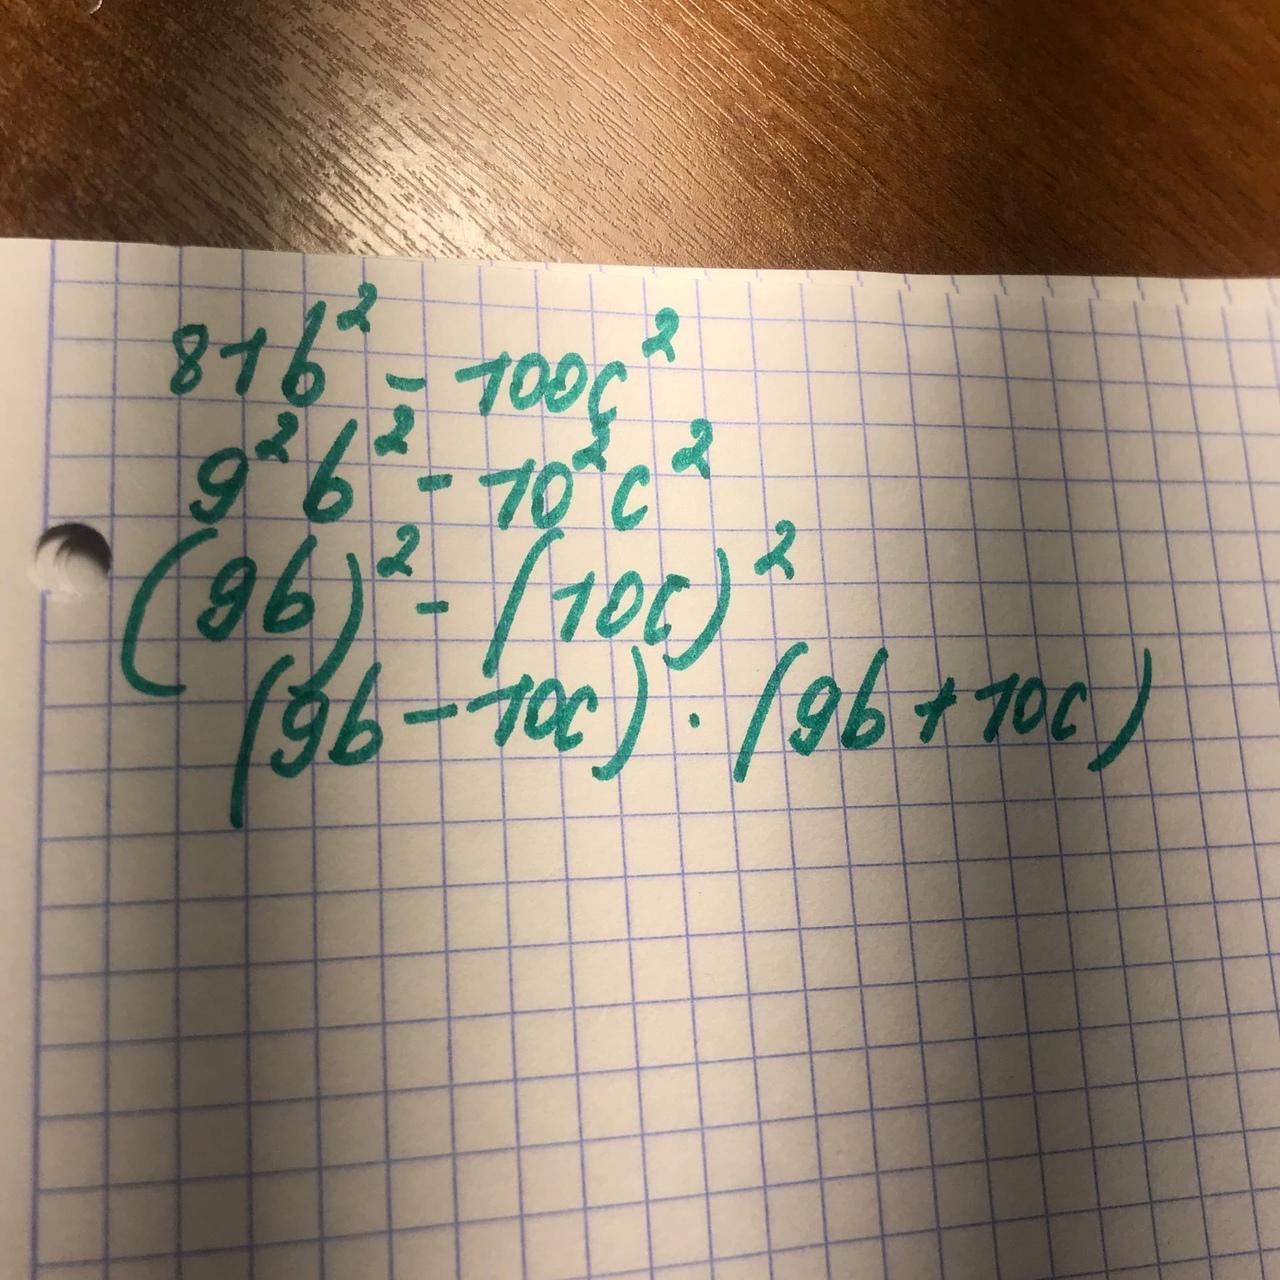 81b² - 100c²
9²b² - 10²c²
(9b)² - (10c)²
(9b - 10c) · (9b + 10c)